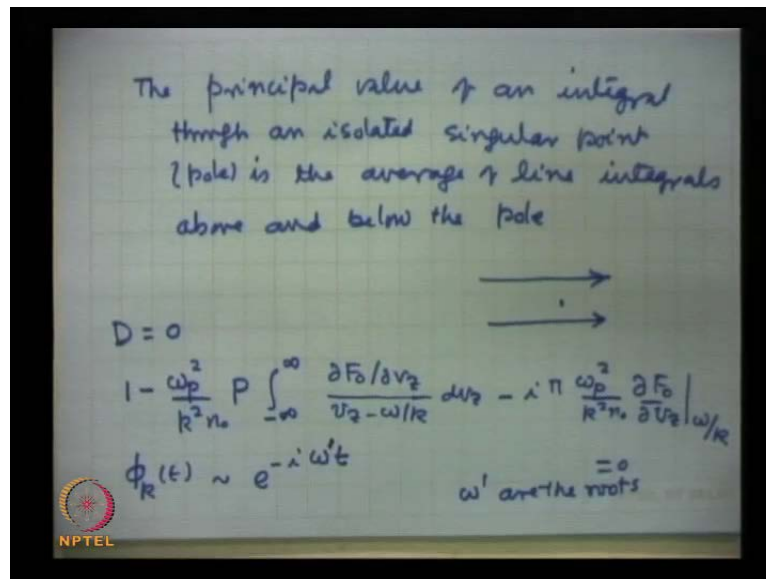 The principal value of an integral
through an isolated singular point
(pole) is the average of line integrals
above and below the pole
D = 0
1 - ωp²/k²n₀ P ∫_{-∞}^{∞} (∂F₀/∂v_z)/(v_z - ω/k) dv_z - iπ ωp²/k²n₀ ∂F₀/∂v_z |_{ω/k} = 0
ϕ_k(t) ~ e^{-iω't} ω' are the roots
NPTEL